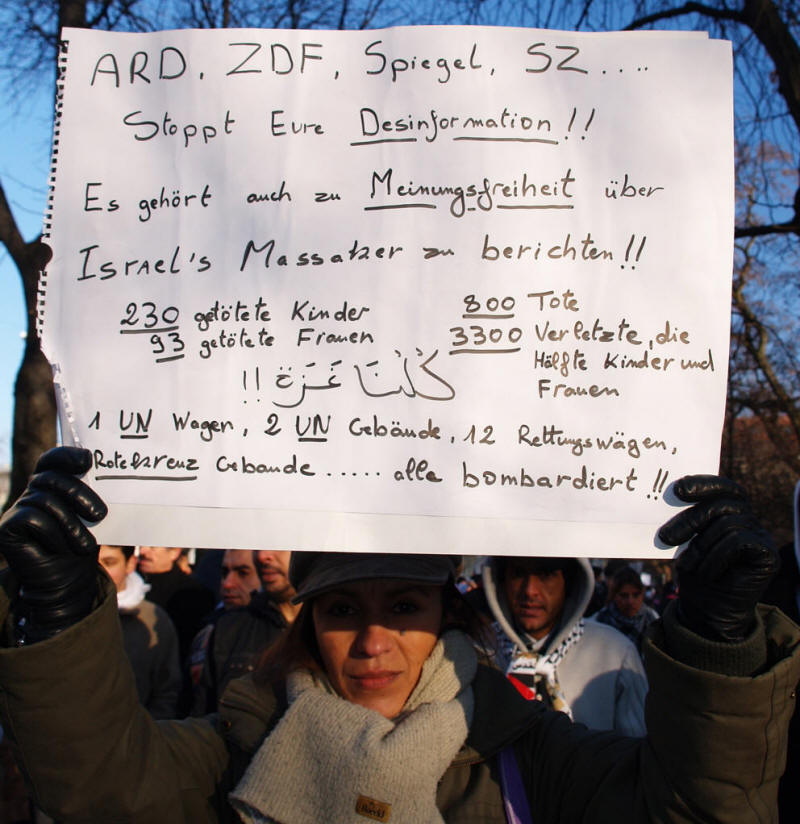 ARD, ZDF, Spiegel, SZ....
Stoppt Eure Desinformation!!
Es gehört auch zu Meinungsfreiheit über
Israel's Massaker zu berichten!!
230 getötete Kinder
93 getötete Frauen
800 Tote
3300 Verletzte, die
Hälfte Kinder und
Frauen
كُلُّنَا غَزَّة !!
1 UN Wagen, 2 UN Gebäude, 12 Rettungswägen,
Rotekreuz Gebäude ..... alle bombardiert!!